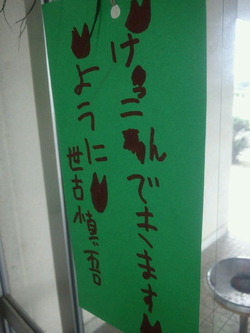 けっこんできます
ように
世古慎吾